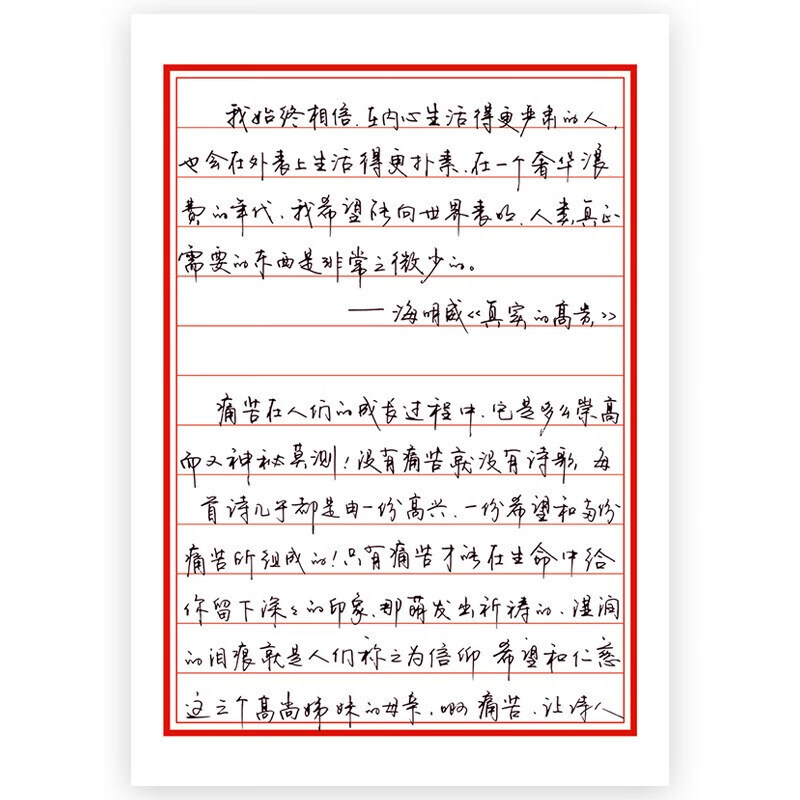 我始终相信，在内心生活得更严肃的人，
也会在外表上生活得更朴素。在一个奢华浪
费的年代，我希望能向世界表明，人类真正
需要的东西是非常之微少的。
——海明威《真实的高贵》
痛苦在人们的成长过程中，它是多么崇高
而又神秘莫测！没有痛苦就没有诗歌，每
首诗几乎都是由一份高兴、一份希望和两份
痛苦所组成的！只有痛苦才能在生命中给
你留下深々的印象，那萌发出祈祷的、湿润
的泪痕就是人们称之为信仰 希望和仁慈
这三个高尚姊妹的母亲，啊 痛苦，让诗人